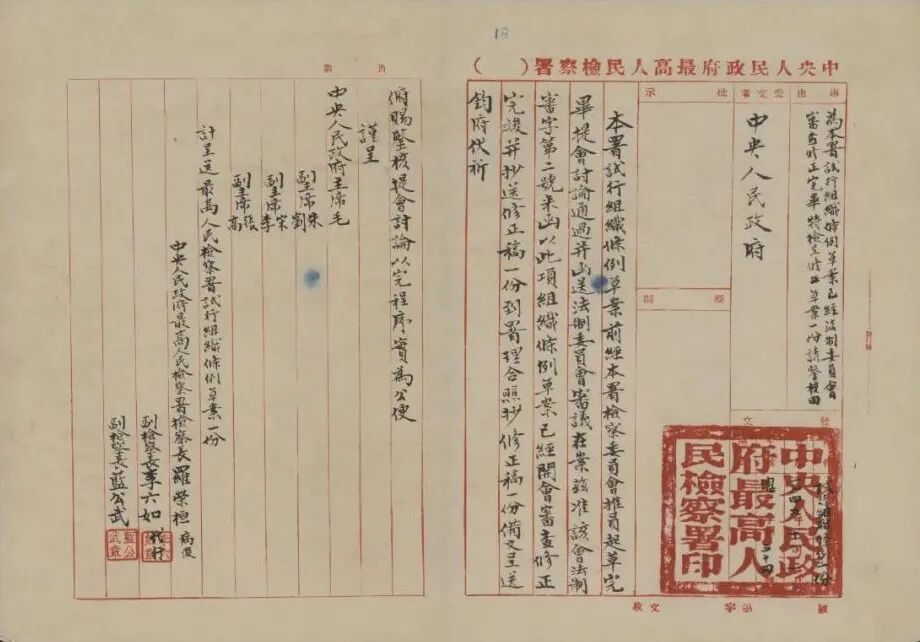 18
中央人民政府最高人民檢察署（ ）
事由
為本署試行組織條例草案已經法制委員會
審查修正完畢特檢呈修正草案一份請鑒核由
受文者
中央人民政府
批示
擬辦
發文
附件
中央人民政
府最高人
民檢察署印
本署試行組織條例草案前經本署檢察委員會推員起草完
畢提會討論通過并函送法制委員會審議在案茲准該會法制
審字第二號來函以此項組織條例草案已經開會審查修正
完竣并抄送修正稿一份到署理合照抄修正稿一份備文呈送
鈞府代祈
俯賜鑒核提會討論以完程序實為公便
謹呈
中央人民政府主席毛
副主席朱劉
副主席宋李
副主席張高
計呈送最高人民檢察署試行組織條例草案一份
中央人民政府最高人民檢察署檢察長羅榮桓 病假
副檢察長李六如 代行
副檢察長藍公武
藍公武章
收文 字第 號